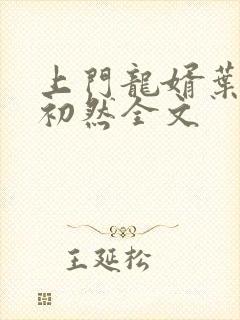 上門龍婿葉
初然全文
王延松